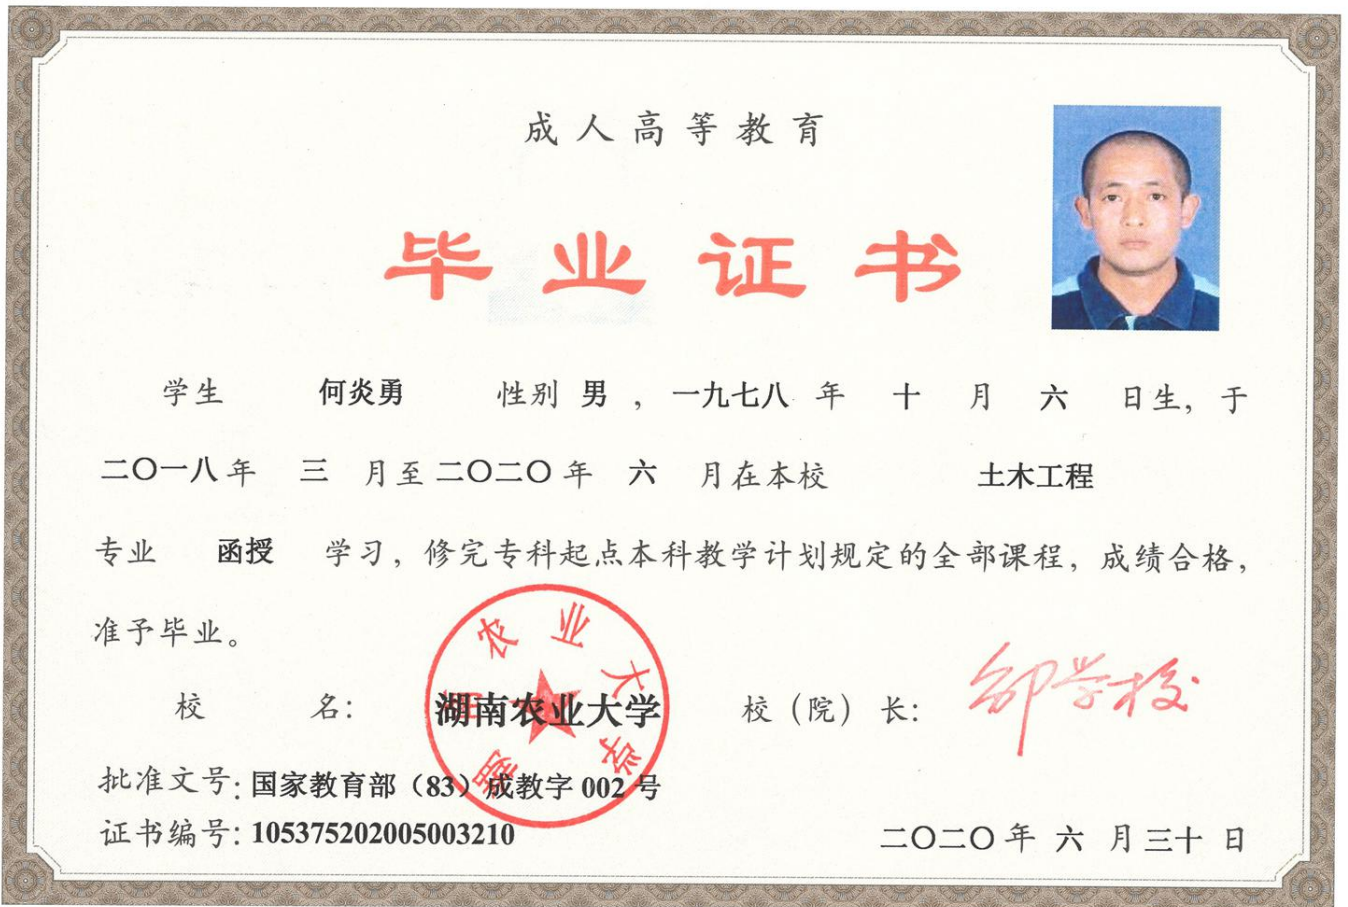 成人高等教育
毕业证书
学生 何炎勇 性别 男 ，一九七八 年 十 月 六 日生，于
二〇一八年 三 月至二〇二〇年 六 月在本校 土木工程
专业 函授 学习，修完专科起点本科教学计划规定的全部课程，成绩合格，
准予毕业。
校 名： 湖南农业大学 校（院）长： 邹学校
湖南农业大学
批准文号：国家教育部（83）成教字 002 号
证书编号：105375202005003210
二〇二〇年 六 月三十 日